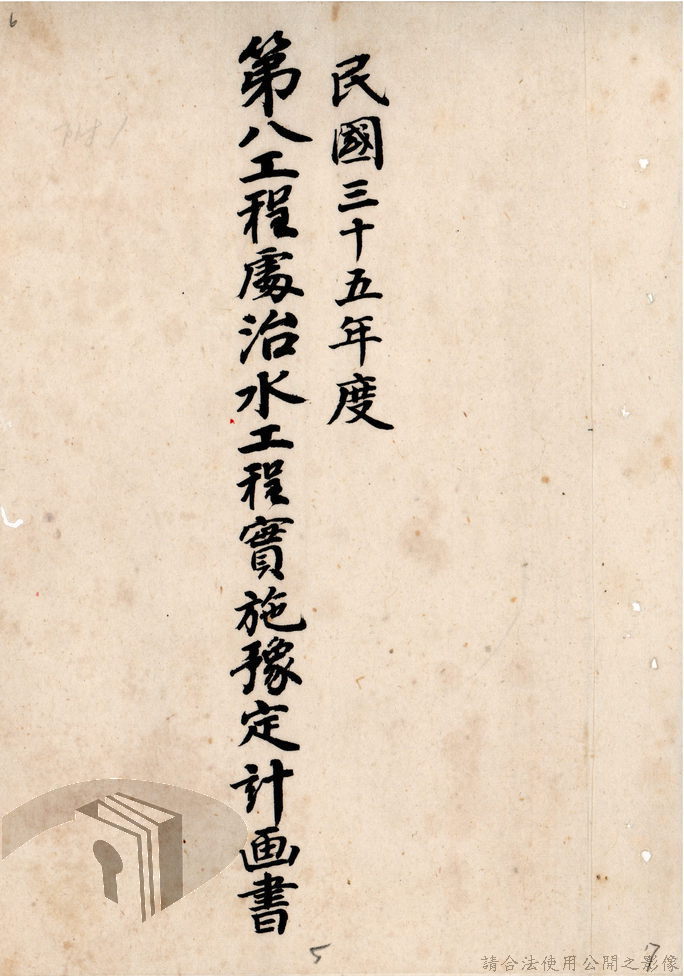 民國三十五年度
第八工程處治水工程實施豫定計画書
6
附1
5
7
請合法使用公開之影像